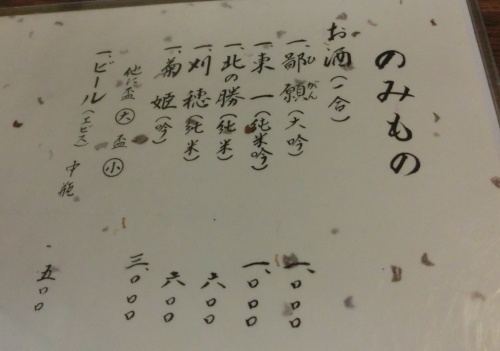 のみもの
お酒(一合)
一、鄙願(ひがん)(大吟) 一、〇〇〇
一、東一(純米吟) 一、〇〇〇
一、北の勝(純米) 六〇〇
一、刈穂(純米) 六〇〇
一、菊姫(吟) 三、〇〇〇
他に盃 大 盃 小
一、ビール(エビス) 中瓶 五〇〇